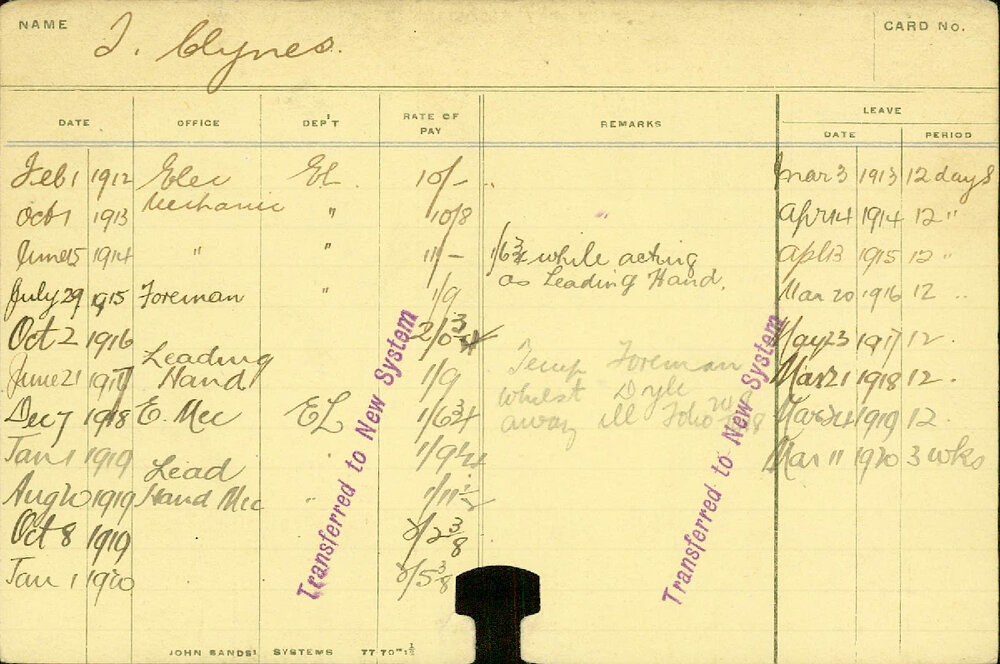 NAME J. Clynes. CARD No.
LEAVE
DATE OFFICE DEP'T RATE OF PAY REMARKS DATE PERIOD
Feb 1 1912 Elec EL. 10/- Mar 3 1913 12 days
Oct 1 1913 Mechanic " 10/8 Apr 14 1914 12 "
June 15 1914 " " 11/- 1/6 3/4 while acting Apl 13 1915 12 "
as Leading Hand.
July 29 1915 Foreman " 1/9 Mar 20 1916 12 "
Oct 2 1916 2/0 3/4 May 23 1917 12.
Leading Temp Foreman
June 21 1917 Hand 1/9 whilst Mar 21 1918 12.
Dec 7 1918 E. Mec EL 1/6 3/4 away ill Mar 24 1919 12.
Jan 1 1919 1/9 Mar 11 1920 3 wks
Lead
Aug 20 1919 Hand Mec " 1/11 1/2
Oct 8 1919 2/2 3/8
Jan 1 1920 2/5 3/8
Transferred to New System
Transferred to New System
JOHN SANDS' SYSTEMS 77 70